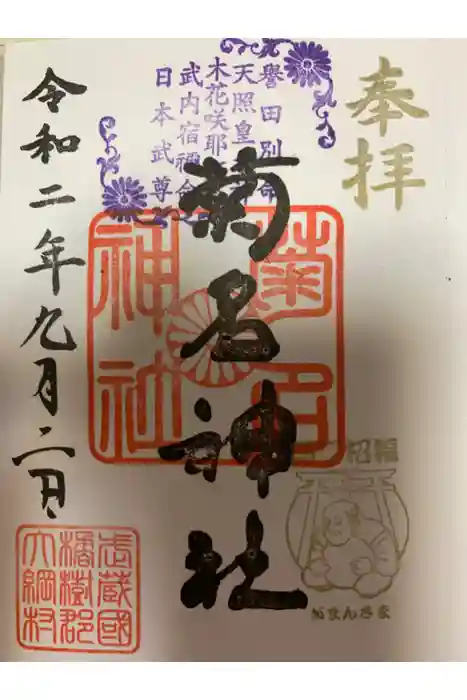 奉拝
譽田別命
天照皇大神
木花咲耶姫命
武内宿禰命
日本武尊
菊名神社
菊名
神社
招福
がまんさま
令和二年九月二日
武蔵國
橘樹郡
大綱村